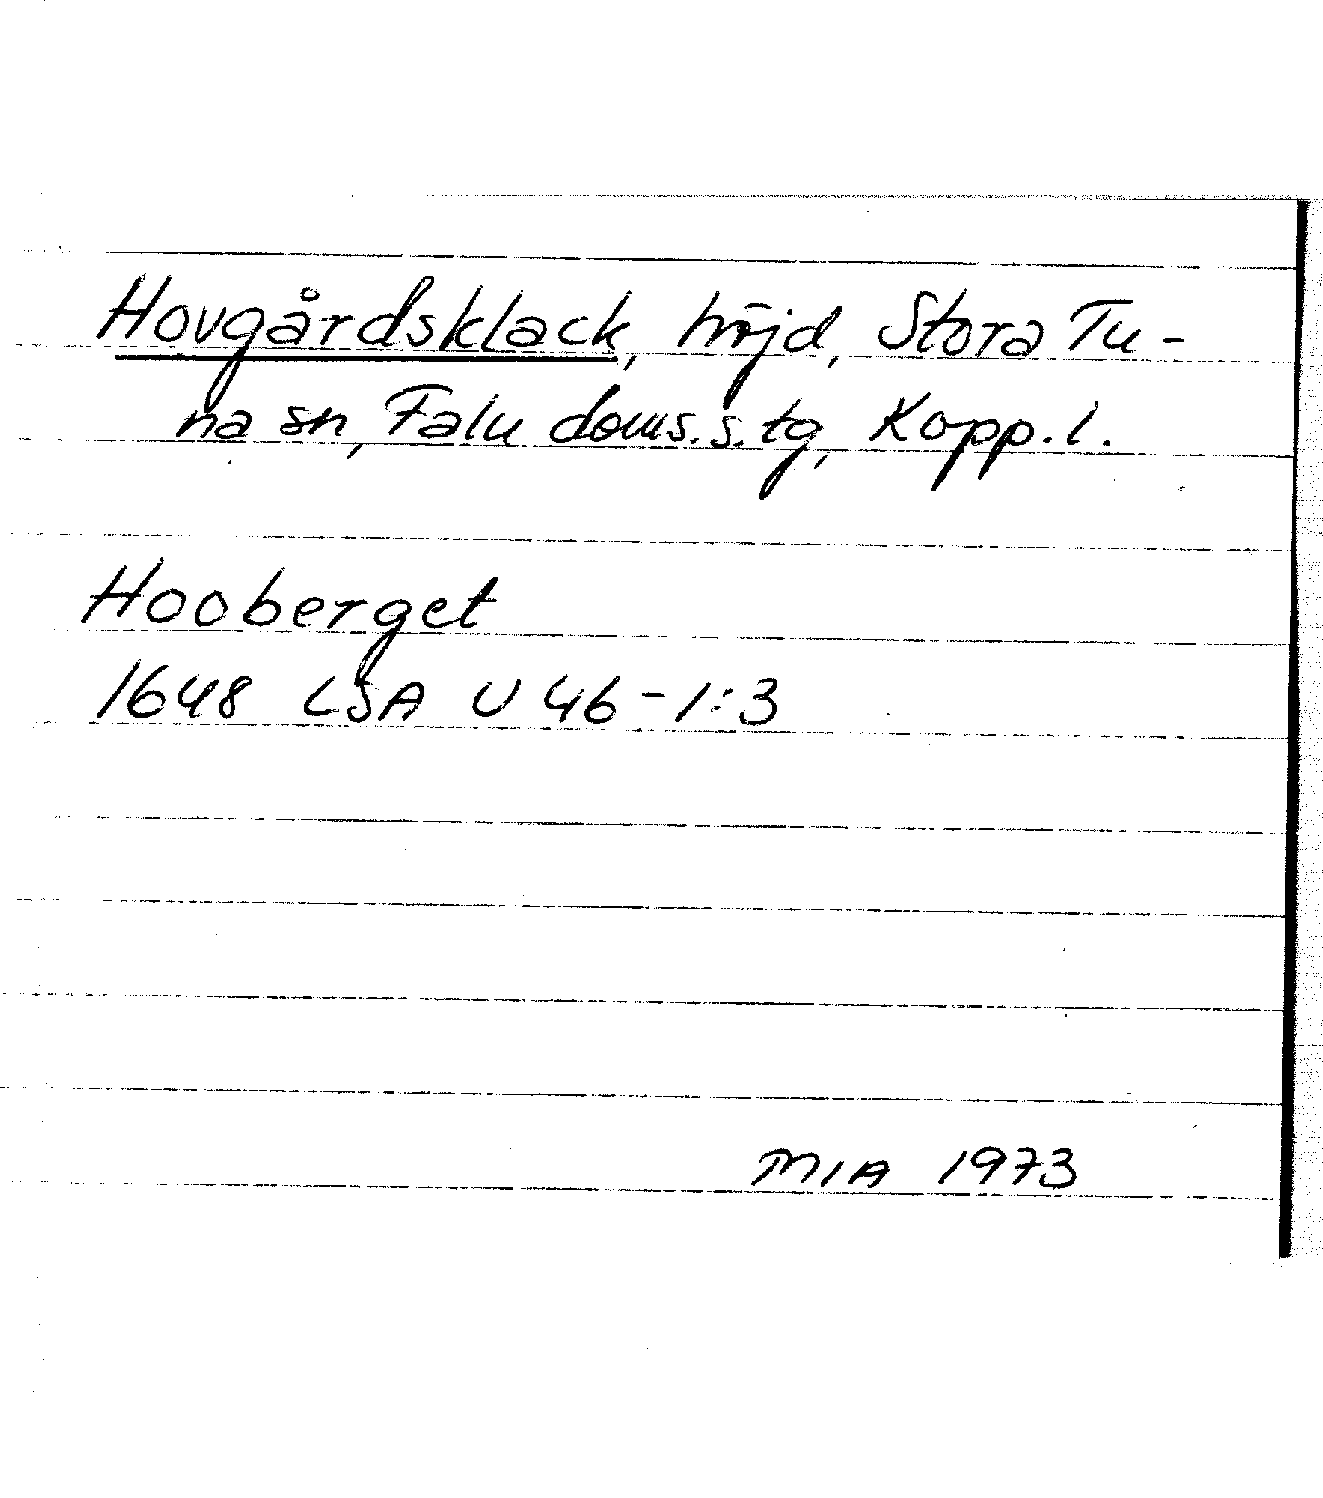 Hovgårdsklack, höjd, Stora Tu-
na sn, Falu doms.s. tg, Kopp. l.
Hooberget
1648 LSA U 46-1:3
MIA 1973